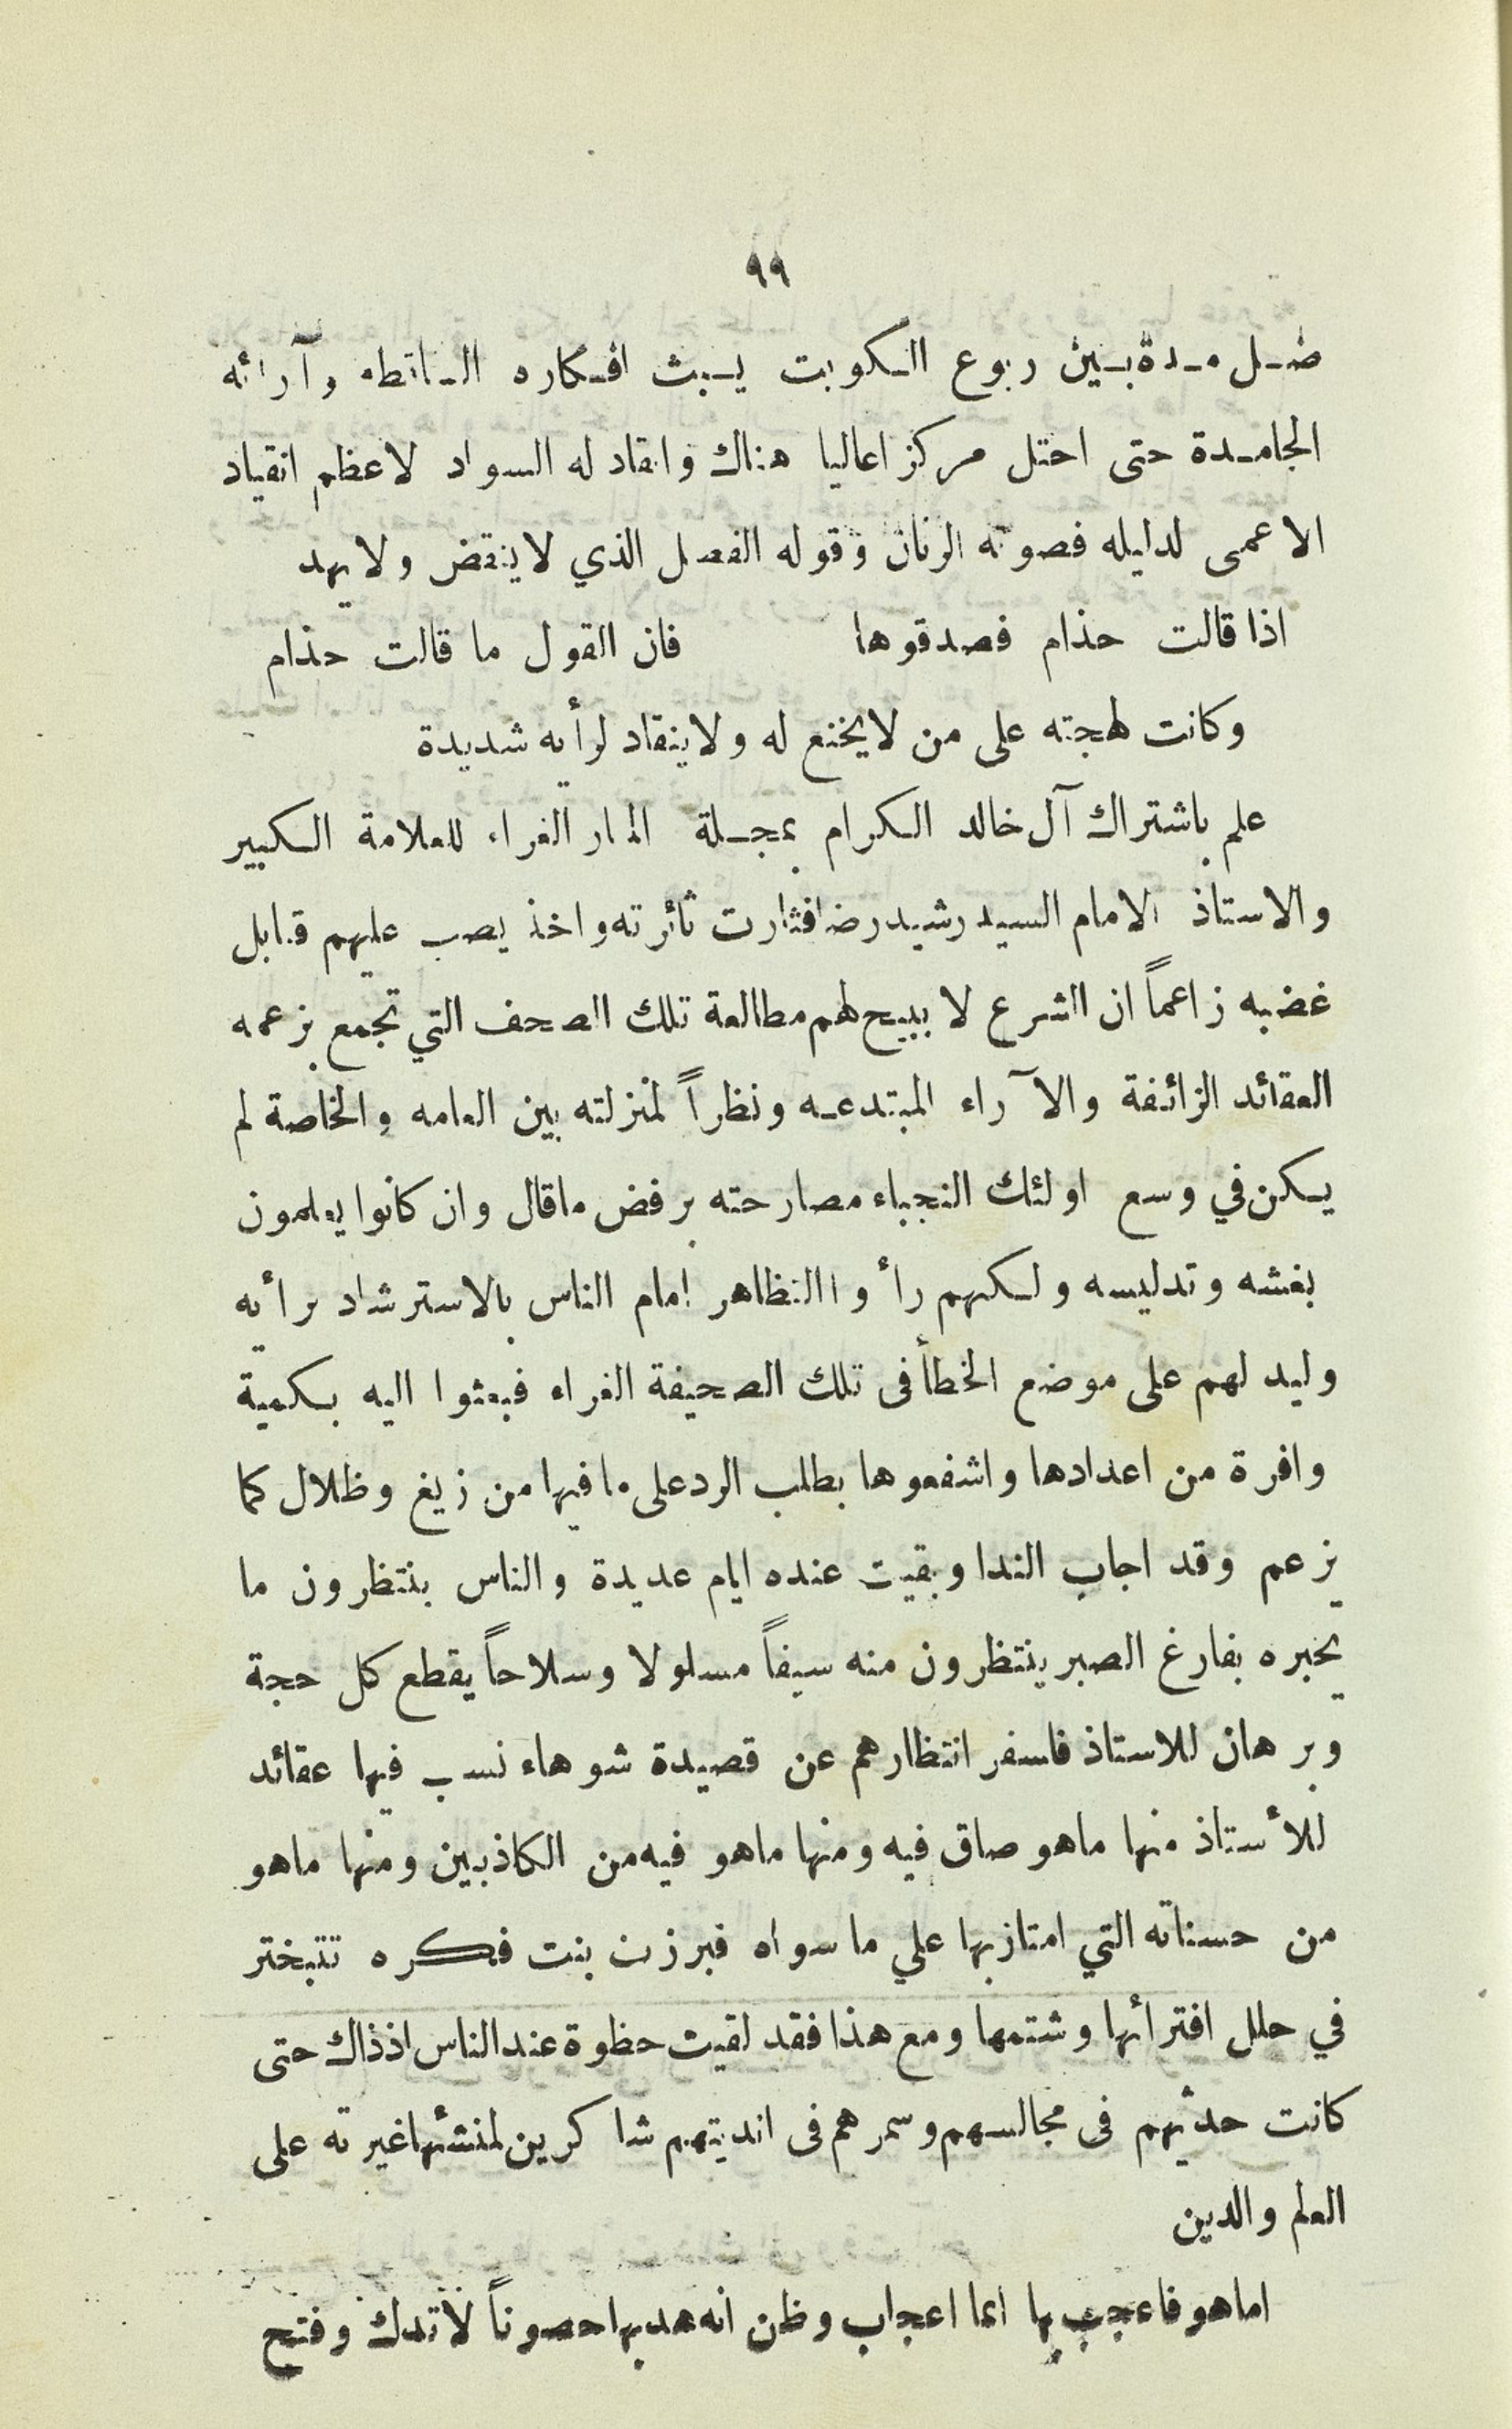 ٩٩
ظل مدة بين ربوع الكويت يبث افكاره الساقطه وآرائه
الجامدة حتى احتل مركز اعاليا هناك وانقاد له السواد لاعظم انقياد
الاعمى لدليله فصوته الرنان وقوله الفصل الذي لاينقض ولا يهد
اذا قالت حذام فصدقوها فان القول ما قالت حذام
وكانت لهجته على من لايخنع له ولاينقاد لرأيه شديدة
علم باشتراك آل خالد الكرام بمجلة المنار الغراء للعلامة الكبير
والاستاذ الامام السيد رشيد رضا فثارت ثائرته واخذ يصب عليهم قنابل
غضبه زاعماً ان الشرع لا يبيح لهم مطالعة تلك الصحف التي تجمع بزعمه
العقائد الزائفة والآراء المبتدعه ونظراً لمنزلته بين العامه والخاصة لم
يكن في وسع اولئك النجباء مصارحته برفض ماقال وان كانوا يعلمون
بغشه وتدليسه ولكنهم رأوا التظاهر امام الناس بالاسترشاد برأيه
وليدلهم على موضع الخطأ فى تلك الصحيفة الغراء فبعثوا اليه بكمية
وافرة من اعدادها واشفعوها بطلب الرد على ما فيها من زيغ وظلال كما
يزعم وقد اجاب الندا وبقيت عنده ايام عديدة والناس بنتظرون ما
يحبره بفارغ الصبر ينتظرون منه سيفاً مسلولا وسلاحاً يقطع كل حجة
وبرهان للاستاذ فاسفر انتظارهم عن قصيدة شوهاء نسب فيها عقائد
للأستاذ منها ماهو صاق فيه ومنها ماهو فيه من الكاذبين ومنها ماهو
من حسناته التي امتاز بها علي ما سواه فبرزت بنت فكره تتبختر
في حلل افترأئها وشتمها ومع هذا فقد لقيت حظوة عند الناس اذذاك حتى
كانت حدثيهم فى مجالسهم وسمرهم فى انديتهم شاكرين لمنشئها غيرته على
العلم والدين
اما هو فاعجب بها ايما اعجاب وظن انه هد بها حصوناً لاتدك وفتح